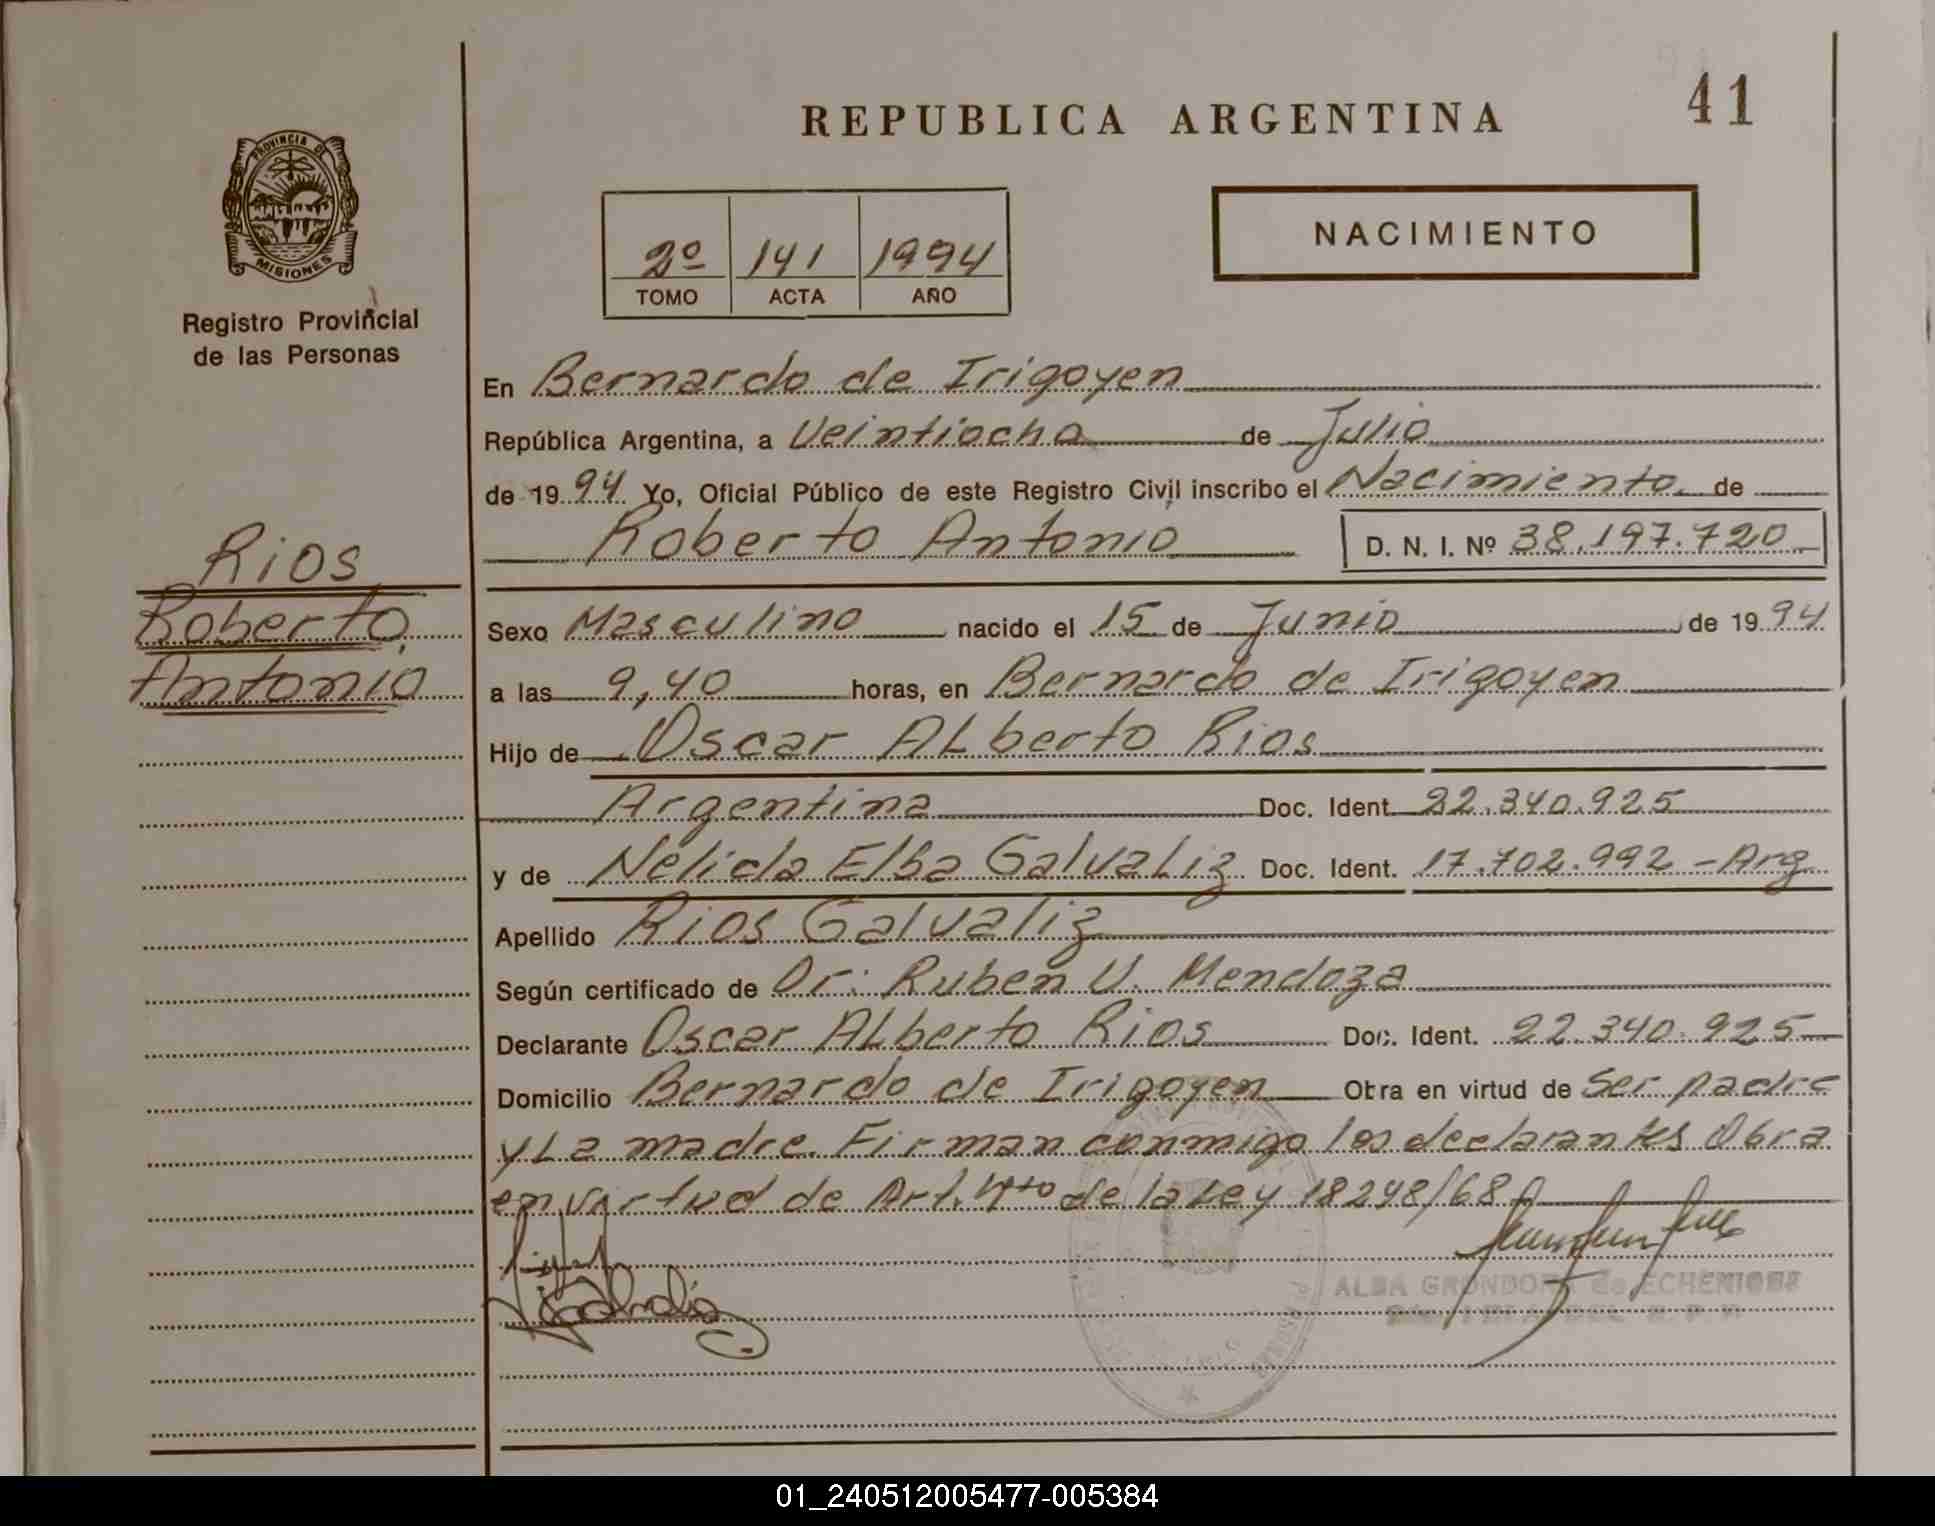 REPUBLICA ARGENTINA
41
PROVINCIA DE
MISIONES
Registro Provincial
de las Personas
NACIMIENTO
2º 141 1994
TOMO ACTA AÑO
En Bernardo de Irigoyen
República Argentina, a Veintiocho de Julio
de 1994 Yo, Oficial Público de este Registro Civil inscribo el Nacimiento de
Roberto Antonio D. N. I. Nº 38.197.720
Rios
Roberto
Antonio
Sexo Masculino nacido el 15 de Junio de 1994
a las 9,40 horas, en Bernardo de Irigoyen
Hijo de Oscar Alberto Rios
Argentina Doc. Ident. 22.340.925
y de Nelida Elba Galvaliz Doc. Ident. 17.702.992 - Arg
Apellido Rios Galvaliz
Según certificado de Dr: Ruben V. Mendoza
Declarante Oscar Alberto Rios Doc. Ident. 22.340.925
Domicilio Bernardo de Irigoyen Obra en virtud de Ser padre
y La madre. Firman conmigo los declarantes Obra
en virtud de Art. 4to de la Ley 18248/68
ALBA GRONDONA de ECHENIQUE
01_240512005477-005384